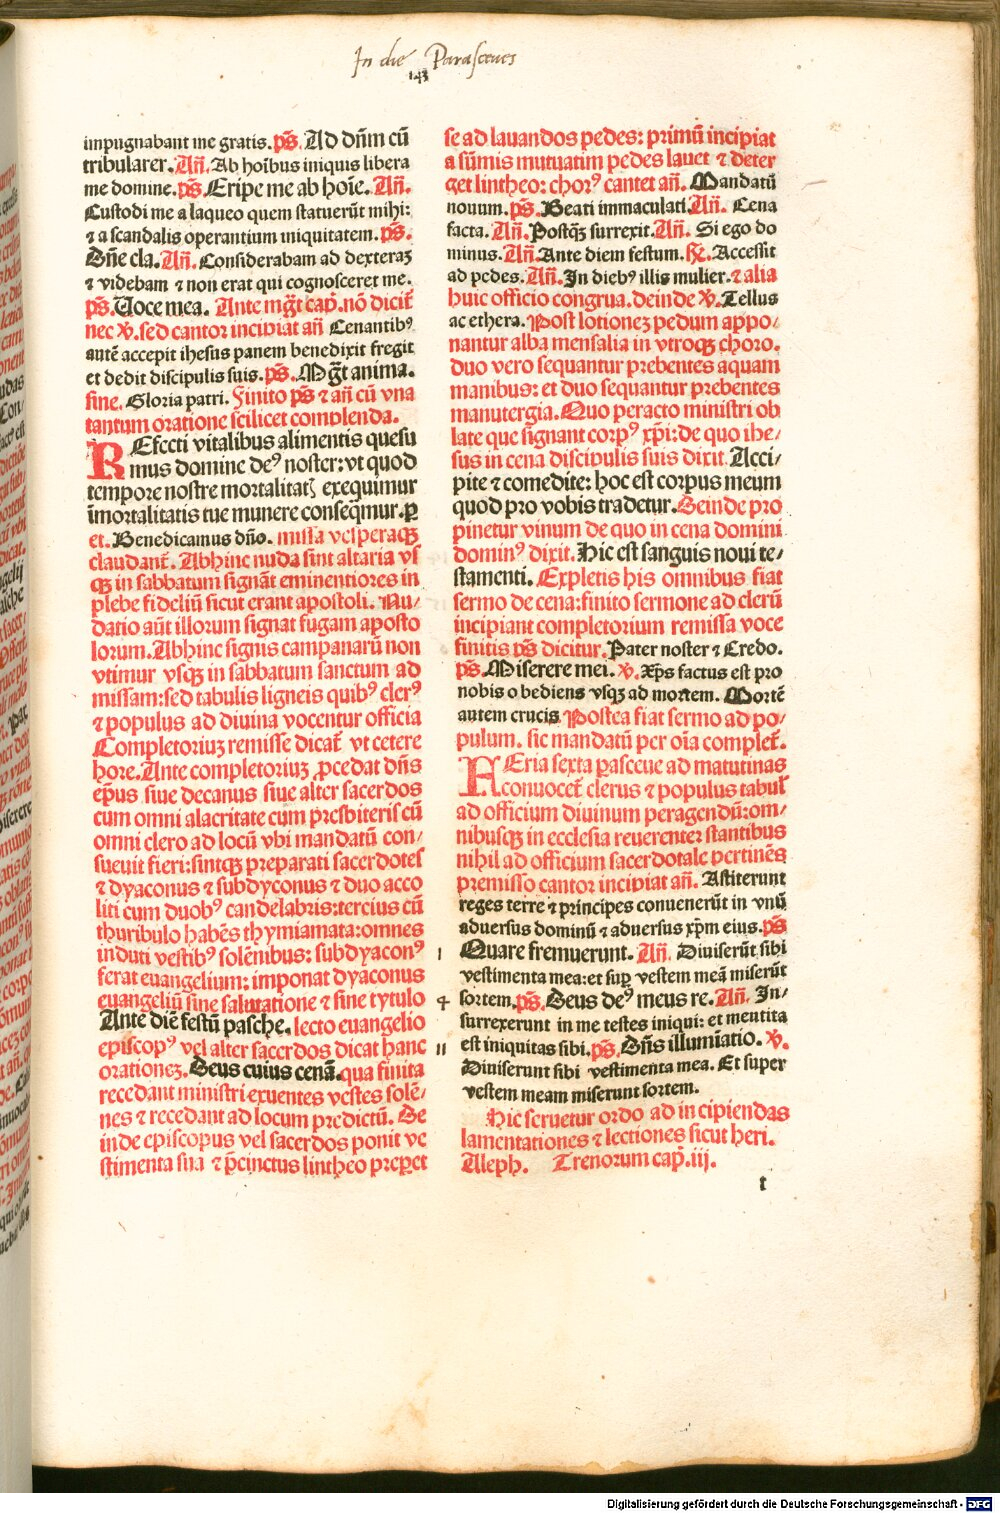 In die Parasceues
143
impugnabant me gratis. ps̄. Ad dn̄m cū
tribularer. Añ. Ab hoı̄bus iniquis libera
me domine. ps̄. Eripe me ab hoı̄e. Añ.
Custodi me a laqueo quem statuerūt mihi:
⁊ a scandalis operantium iniquitatem. ps̄.
Dn̄e cla. Añ. Considerabam ad dexteraꝫ
⁊ videbam ⁊ non erat qui cognosceret me.
ps̄. Uoce mea. Ante mg̃t cap̄. nō dicit̄
nec ꝟ. sed cantor incipiat añ Cenantibꝰ
autē accepit ihesus panem benedixit fregit
et dedit discipulis suis. ps̄. Mg̃t anima.
fine. Gloria patri. Finito ps̄ ⁊ añ cū vna
tantum oratione scilicet complenda.
REfecti vitalibus alimentis quesu
mus domine deꝰ noster: vt quod
tempore nostre mortalitatꝭ exequimur
ı̄mortalitatis tue munere conseq̄mur. ꝑ
et. Benedicamus dn̄o. missa vesperaqꝫ
claudant̄. Abhinc nuda sint altaria vs
qꝫ in sabbatum signāt eminentiores in
plebe fideliū sicut erant apostoli. Nu/
datio aūt illorum signat fugam aposto
lorum. Abhinc signis campanarū non
vtimur vsqꝫ in sabbatum sanctum ad
missam: sed tabulis ligneis quibꝰ clerꝰ
⁊ populus ad diuina vocentur officia
Completoriuꝫ remisse dicat̄ vt cetere
hore. Ante completoriuꝫ ꝓcedat dn̄s
ep̄us siue decanus siue alter sacerdos
cum omni alacritate cum presbiteris cū
omni clero ad locū vbi mandatū con/
sueuit fieri: sintqꝫ preparati sacerdotes
⁊ dyaconus ⁊ subdyconus ⁊ duo acco
liti cum duobꝰ candelabris: tercius cū
thuribulo habēs thymiamata: omnes
induti vestibꝰ solēnibus: subdyaconꝰ
ferat euangelium: imponat dyaconus
euangeliū sine salutatione ⁊ sine tytulo
Ante diē festū pasche. lecto euangelio
episcopꝰ vel alter sacerdos dicat hanc
orationeꝫ. Deus cuius cenā. qua finita
recedant ministri exuentes vestes solē/
nes ⁊ recedant ad locum predictū. De
inde episcopus vel sacerdos ponit ve
stimenta sua ⁊ p̄cinctus lintheo prep̄et
se ad lauandos pedes: primū incipiat
a sūmis mutuatim pedes lauet ⁊ deter
get lintheo: chorꝰ cantet añ. Mandatū
nouum. ps̄. Beati immaculati. Añ. Cena
facta. Añ. Postqꝫ surrexit. Añ. Si ego do
minus. Añ. Ante diem festum. ℟. Accessit
ad pedes. Añ. In diebꝰ illis mulier. ⁊ alia
huic officio congrua. deinde ꝟ. Tellus
ac ethera. Post lotioneꝫ pedum appo/
nantur alba mensalia in vtroqꝫ choro.
duo vero sequantur prebentes aquam
manibus: et duo sequantur prebentes
manutergia. Quo peracto ministri ob
late que signant corpꝰ xp̄i: de quo ihe/
sus in cena discipulis suis dixit. Acci/
pite ⁊ comedite: hoc est corpus meum
quod pro vobis tradetur. Deinde pro
pinetur vinum de quo in cena domini
dominꝰ dixit. Hic est sanguis noui te/
stamenti. Expletis his omnibus fiat
sermo de cena: finito sermone ad clerū
incipiant completorium remissa voce
finitis ps̄ dicitur. Pater noster ⁊ Credo.
ps̄. Miserere mei. ꝟ. Xp̄s factus est pro
nobis o bediens vsqꝫ ad mortem. Mortē
autem crucis Postea fiat sermo ad po/
pulum. sic mandatū per oı̄a complet̄.
FEria sexta ꝑasceue ad matutinas
conuocet̄ clerus ⁊ populus tabul̄
ad officium diuinum peragendū: om/
nibusqꝫ in ecclesia reuerenter stantibus
nihil ad officium sacerdotale pertinēs
premisso cantor incipiat añ. Astiterunt
reges terre ⁊ principes conuenerūt in vnū
aduersus dominū ⁊ aduersus xp̄m eius. ps̄
Quare fremuerunt. Añ. Diuiserūt sibi
vestimenta mea: et suꝑ vestem meā miserūt
sortem. ps̄. Deus deꝰ meus re. Añ. In/
surrexerunt in me testes iniqui: et mentita
est iniquitas sibi. ps̄. Dn̄s illumı̄atio. ꝟ.
Diuiserunt sibi vestimenta mea. Et super
vestem meam miserunt sortem.
Hic seruetur ordo ad in cipiendas
lamentationes ⁊ lectiones sicut heri.
Aleph. Trenorum cap̄. iij.
t
Digitalisierung gefördert durch die Deutsche Forschungsgemeinschaft - DFG